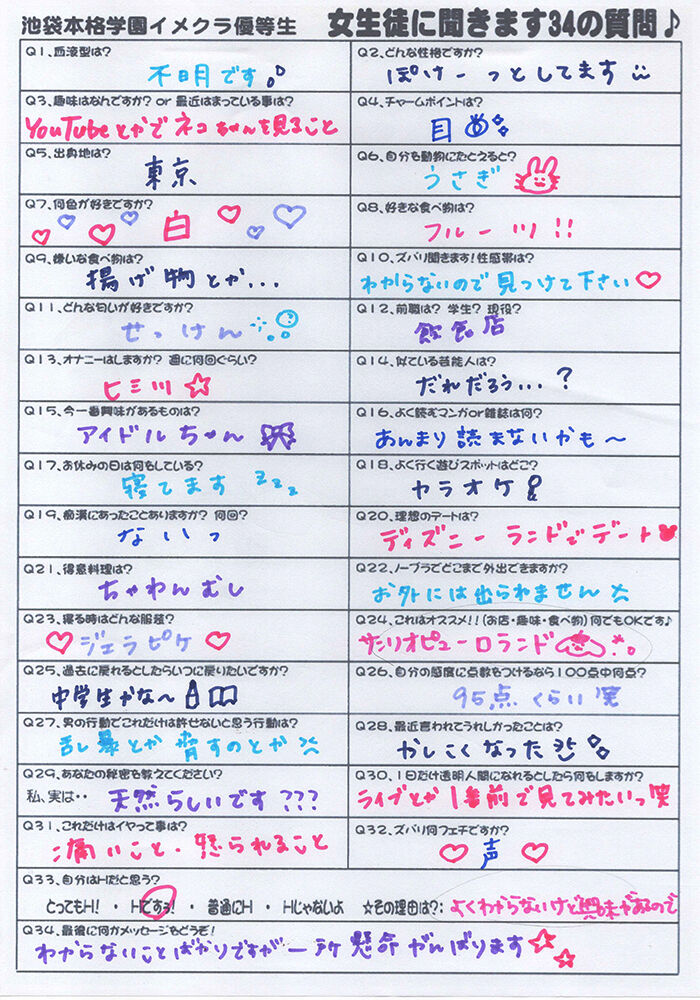 池袋本格学園イメクラ優等生 女生徒に聞きます34の質問♪
Q1、血液型は?
不明です
Q2、どんな性格ですか?
ぽけーっとしてます
Q3、趣味はなんですか? or 最近はまっている事は?
YouTubeとかでネコちゃんを見ること
Q4、チャームポイントは?
目
Q5、出身地は?
東京
Q6、自分を動物にたとえると?
うさぎ
Q7、何色が好きですか?
白
Q8、好きな食べ物は?
フルーツ!!
Q9、嫌いな食べ物は?
揚げ物とか...
Q10、ズバリ聞きます!性感帯は?
わからないので見つけて下さい♡
Q11、どんな匂いが好きですか?
せっけん
Q12、前職は? 学生? 現役?
飲食店
Q13、オナニーはしますか? 週に何回ぐらい?
ヒミツ☆
Q14、似ている芸能人は?
だれだろう...?
Q15、今一番興味があるものは?
アイドルちゃん
Q16、よく読むマンガor雑誌は何?
あんまり読まないかも〜
Q17、お休みの日は何をしている?
寝てます zzz
Q18、よく行く遊びスポットはどこ?
カラオケ
Q19、痴漢にあったことありますか? 何回?
ないっ
Q20、理想のデートは?
ディズニーランドでデート
Q21、得意料理は?
ちゃわんむし
Q22、ノーブラでどこまで外出できますか?
お外には出られません
Q23、寝る時はどんな服装?
♡ジェラピケ♡
Q24、これはオススメ!!(お店・趣味・食べ物)何でもOKです♪
サンリオピューロランド
Q25、過去に戻れるとしたらいつに戻りたいですか?
中学生かな〜
Q26、自分の感度に点数をつけるなら100点中何点?
95点くらい笑
Q27、男の行動でこれだけは許せないと思う行動は?
乱暴とか脅すのとか
Q28、最近言われてうれしかったことは?
かしこくなった
Q29、あなたの秘密を教えてください?
私、実は‥ 天然らしいです???
Q30、1日だけ透明人間になれるとしたら何をしますか?
ライブとか1番前で見てみたいっ笑
Q31、これだけはイヤって事は?
痛いこと・怒られること
Q32、ズバリ何フェチですか?
♡声♡
Q33、自分はHだと思う?
とってもH! ・ Hですぅ! ・ 普通にH ・ Hじゃないよ ☆その理由は?: よくわからないけど興味があるので
Q34、最後に何かメッセージをどうぞ!
わからないことばかりですが一所懸命がんばります☆☆